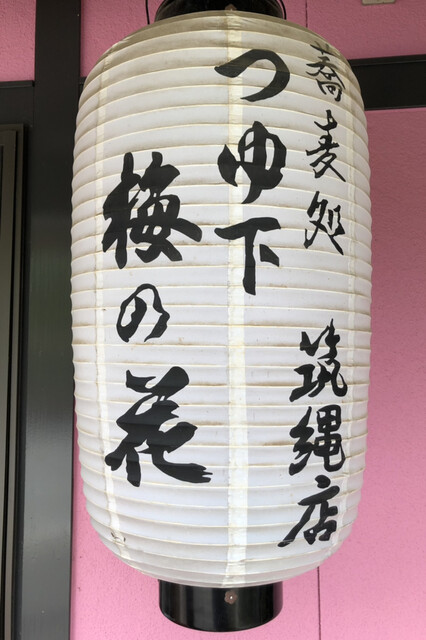 蕎麦処
筑縄店
つゆ下
梅の花